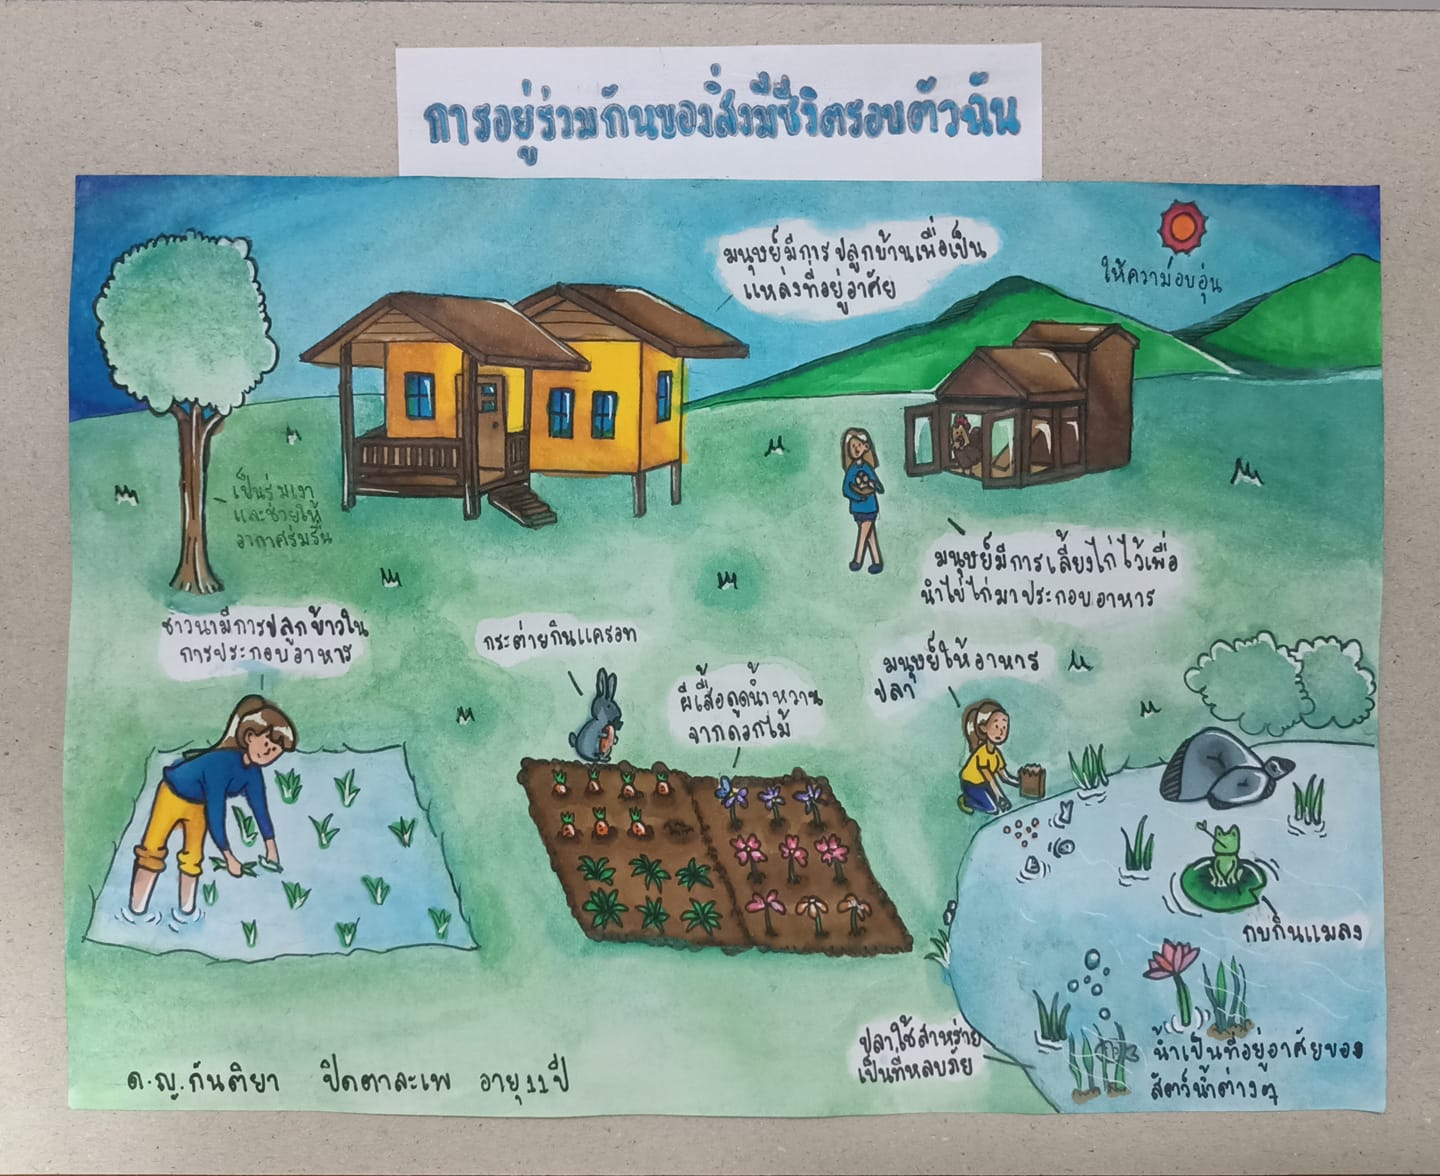 การอยู่ร่วมกันของสิ่งมีชีวิตรอบตัวฉัน
มนุษย์มีการปลูกบ้านเพื่อเป็น
แหล่งที่อยู่อาศัย
ให้ความอบอุ่น
เป็นร่มเงา
และช่วยให้
อากาศร่มรื่น
มนุษย์มีการเลี้ยงไก่ไว้เพื่อ
นำไข่ไก่มาประกอบอาหาร
ชาวนามีการปลูกข้าวใน
การประกอบอาหาร
กระต่ายกินแครอท
ผีเสื้อดูดน้ำหวาน
จากดอกไม้
มนุษย์ให้อาหาร
ปลา
กบกินแมลง
ปลาใช้สาหร่าย
เป็นที่หลบภัย
น้ำเป็นที่อยู่อาศัยของ
สัตว์น้ำต่างๆ
ด.ญ.กันติยา ปิดตาละเพ อายุ11ปี